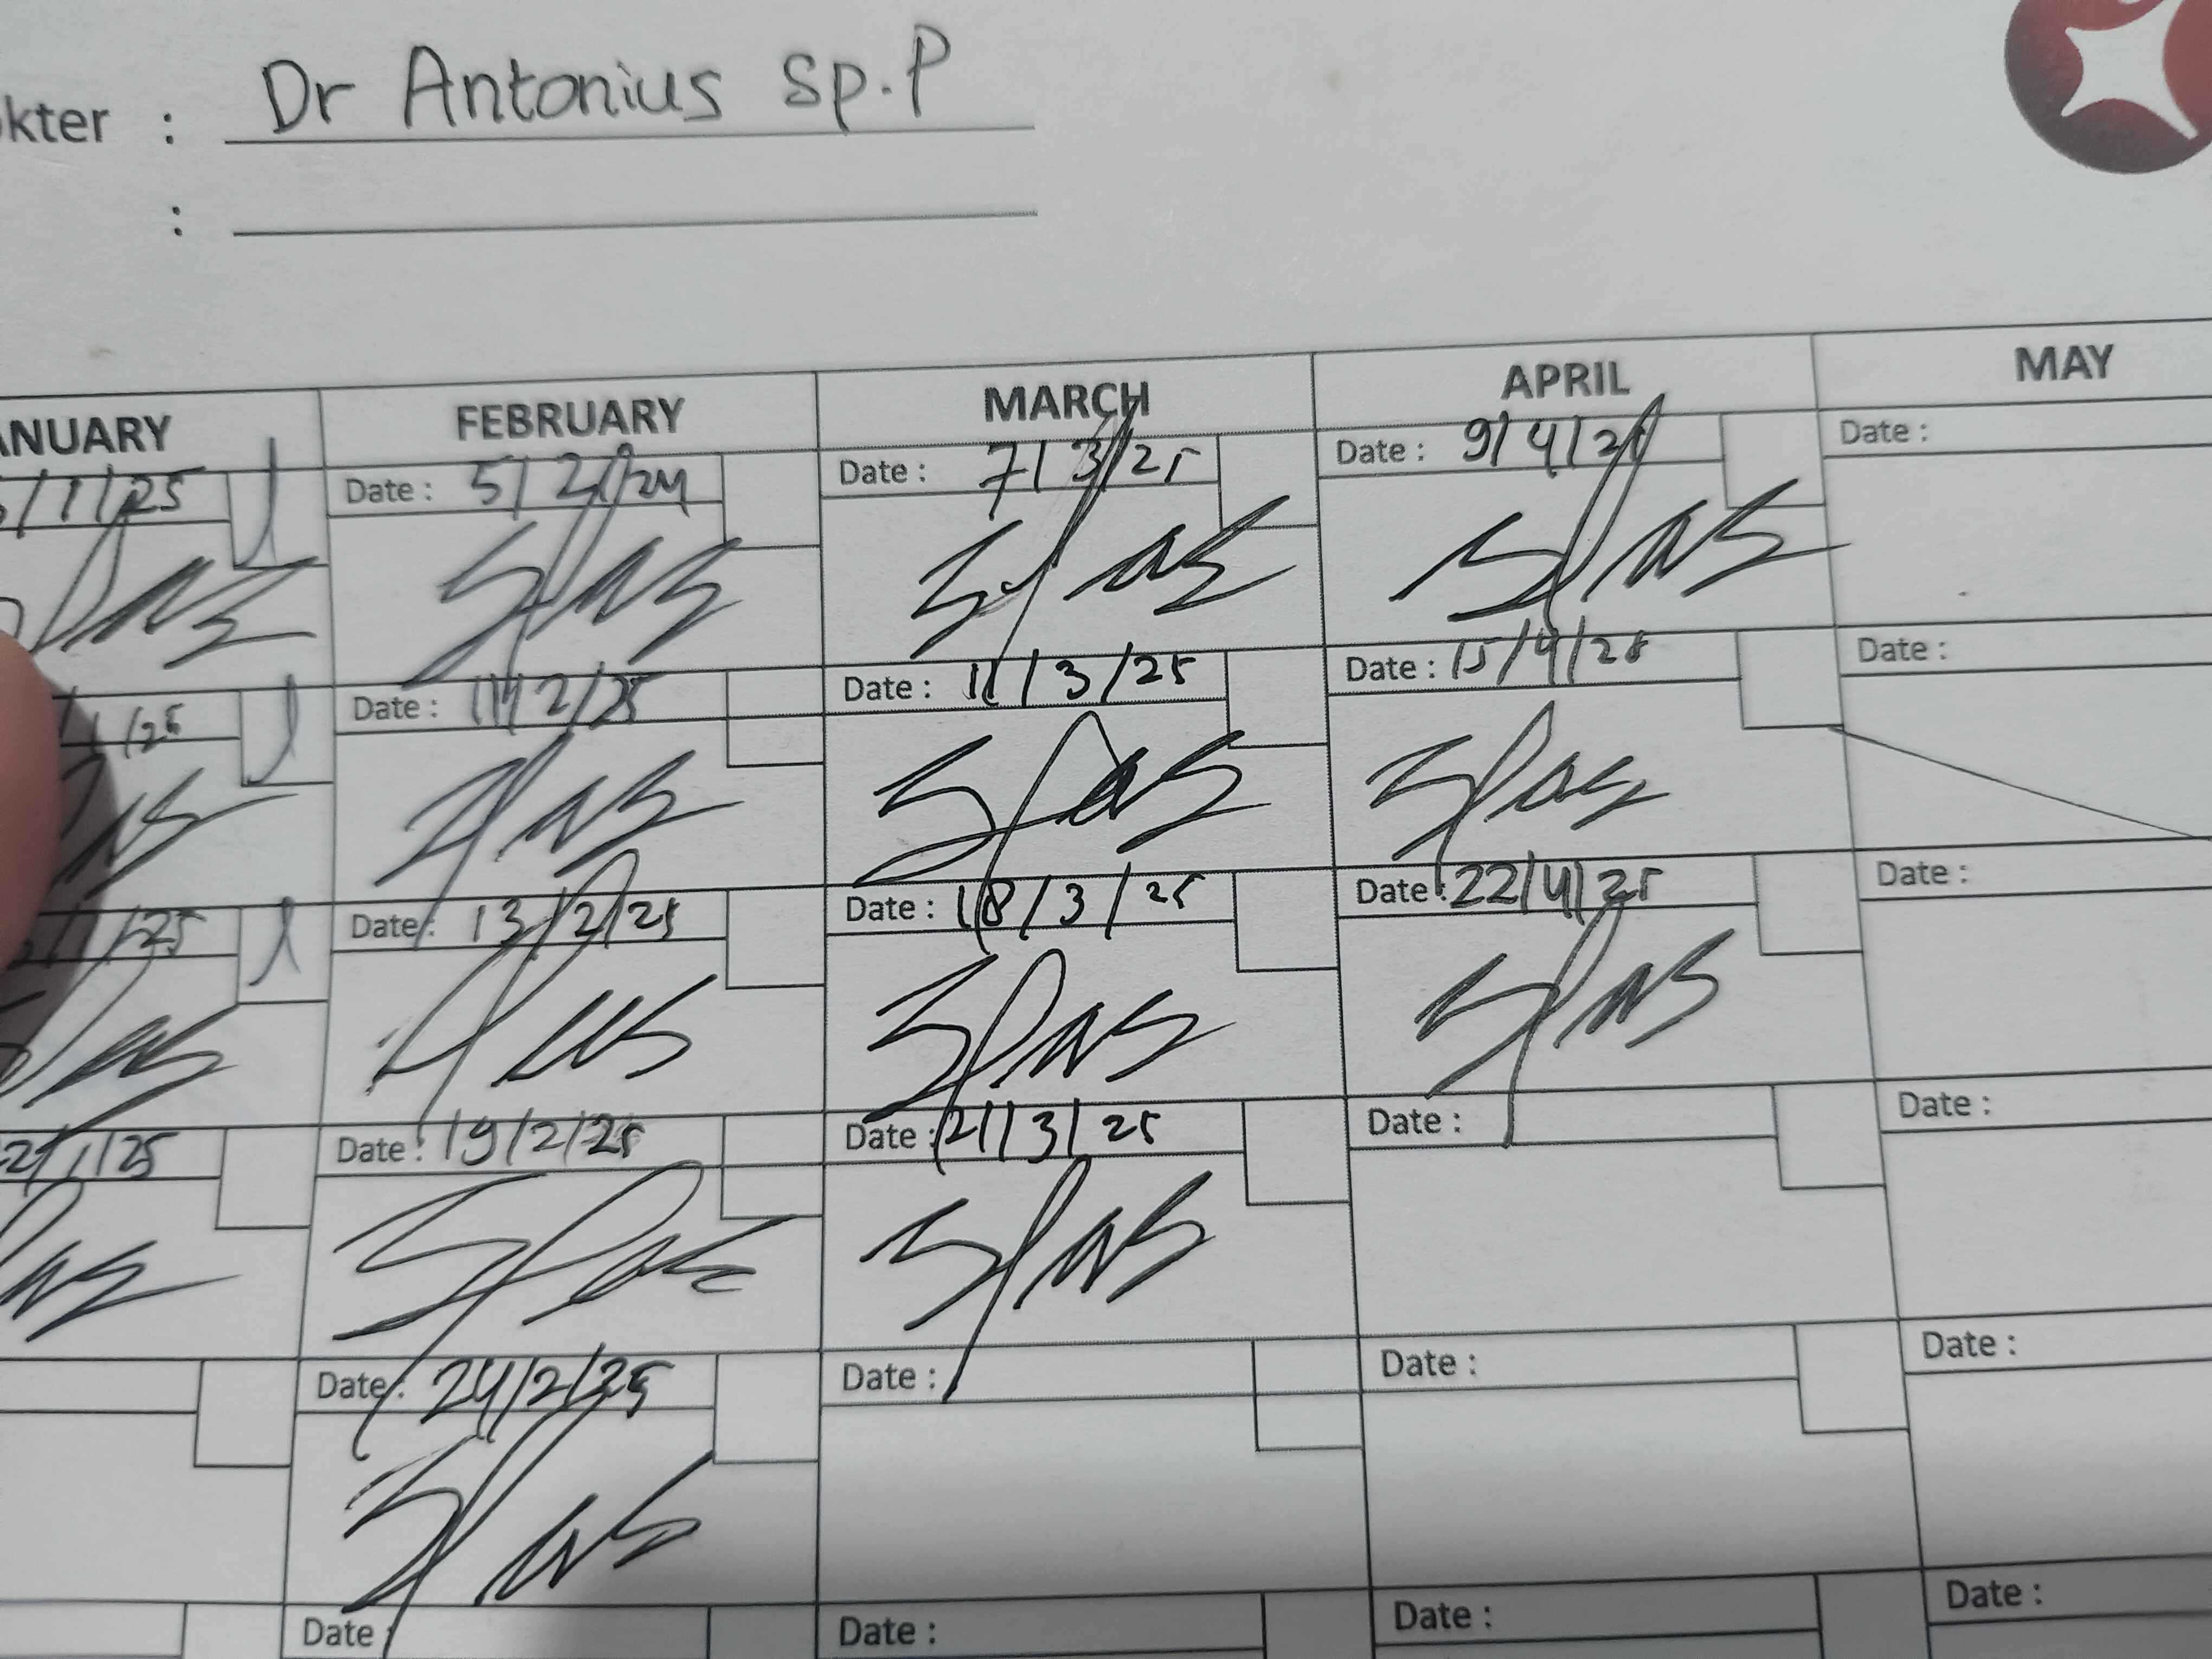 kter : Dr Antonius Sp.P
:
ANUARY FEBRUARY MARCH APRIL MAY
/1/25 Date : 5/2/24 Date : 7/3/25 Date : 9/4/25 Date :
/25 Date : 11/2/25 Date : 11/3/25 Date : 15/4/25 Date :
/25 Date : 13/2/25 Date : 18/3/25 Date : 22/4/25 Date :
2/1/25 Date : 19/2/25 Date : 21/3/25 Date : Date :
Date : 24/2/25 Date : Date : Date :
Date : Date : Date : Date :